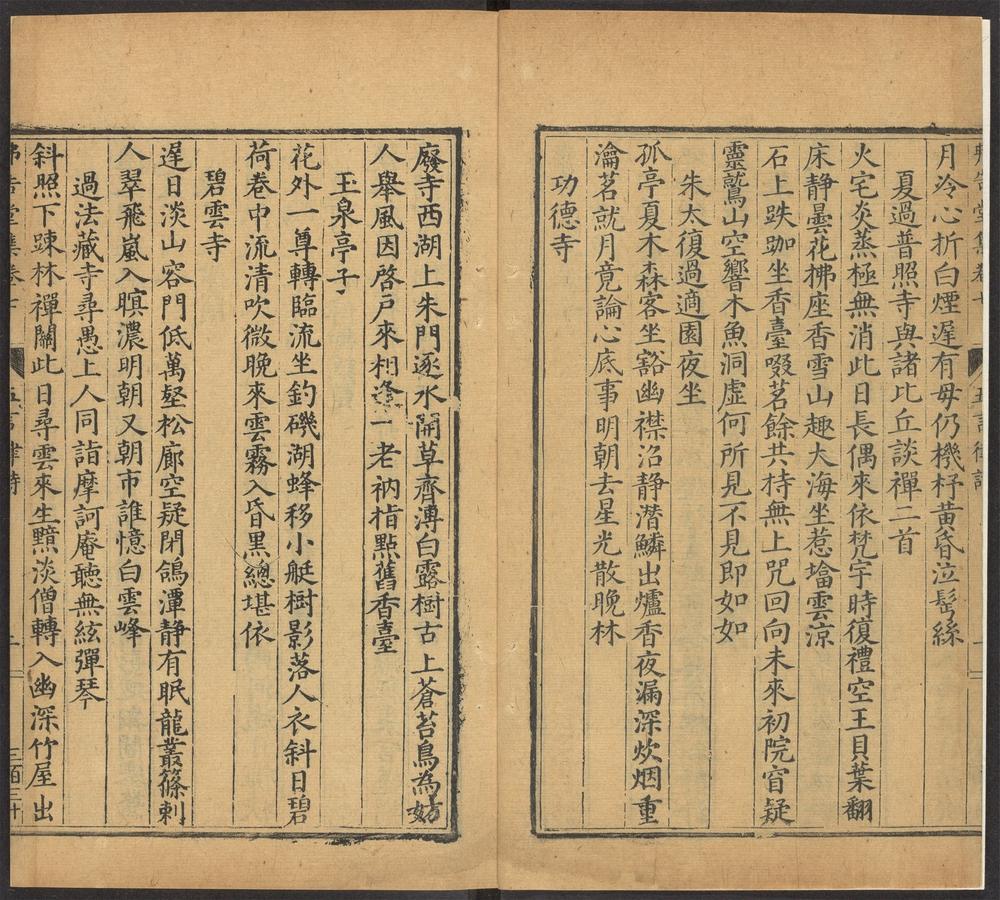 月冷心折白煙遲有母仍機杼黃昏泣髩絲
夏過普照寺與諸比丘談禪二首
火宅炎蒸極無消此日長偶來依梵宇時復禮空王貝葉翻
床静曇花梻座香雪山趣大海坐惹墖雲凉
石上趺跏坐香臺啜茗餘共持無上咒回向未來初院窅疑
靈鷲山空響木魚洞虛何所見不見即如如
朱太復過適園夜坐
孤亭夏木森客坐豁幽襟沼静潛鱗出爐香夜漏深炊烟重
瀹茗就月竟論心底事明朝去星光散晚林
功德寺
廢寺西湖上朱門逐水開草齊溥白露樹古上蒼苔鳥為妨
人舉風因啓戶來相逢一老衲指點舊香臺
玉泉亭子
花外一尊轉臨流坐釣磯湖蜂移小艇樹影落人衣斜日碧
荷卷中流清吹微晚來雲霧入昏黑總堪依
碧雲寺
遅日淡山容門低萬壑松廊空疑閉鴿潭静有眠龍叢篠刺
人翠飛嵐入暝濃明朝又朝市誰憶白雲峰
過法藏寺尋愚上人同詣摩訶庵聽無絃彈琴
斜照下踈林禪關此日尋雲來生黯淡僧轉入幽深竹屋出